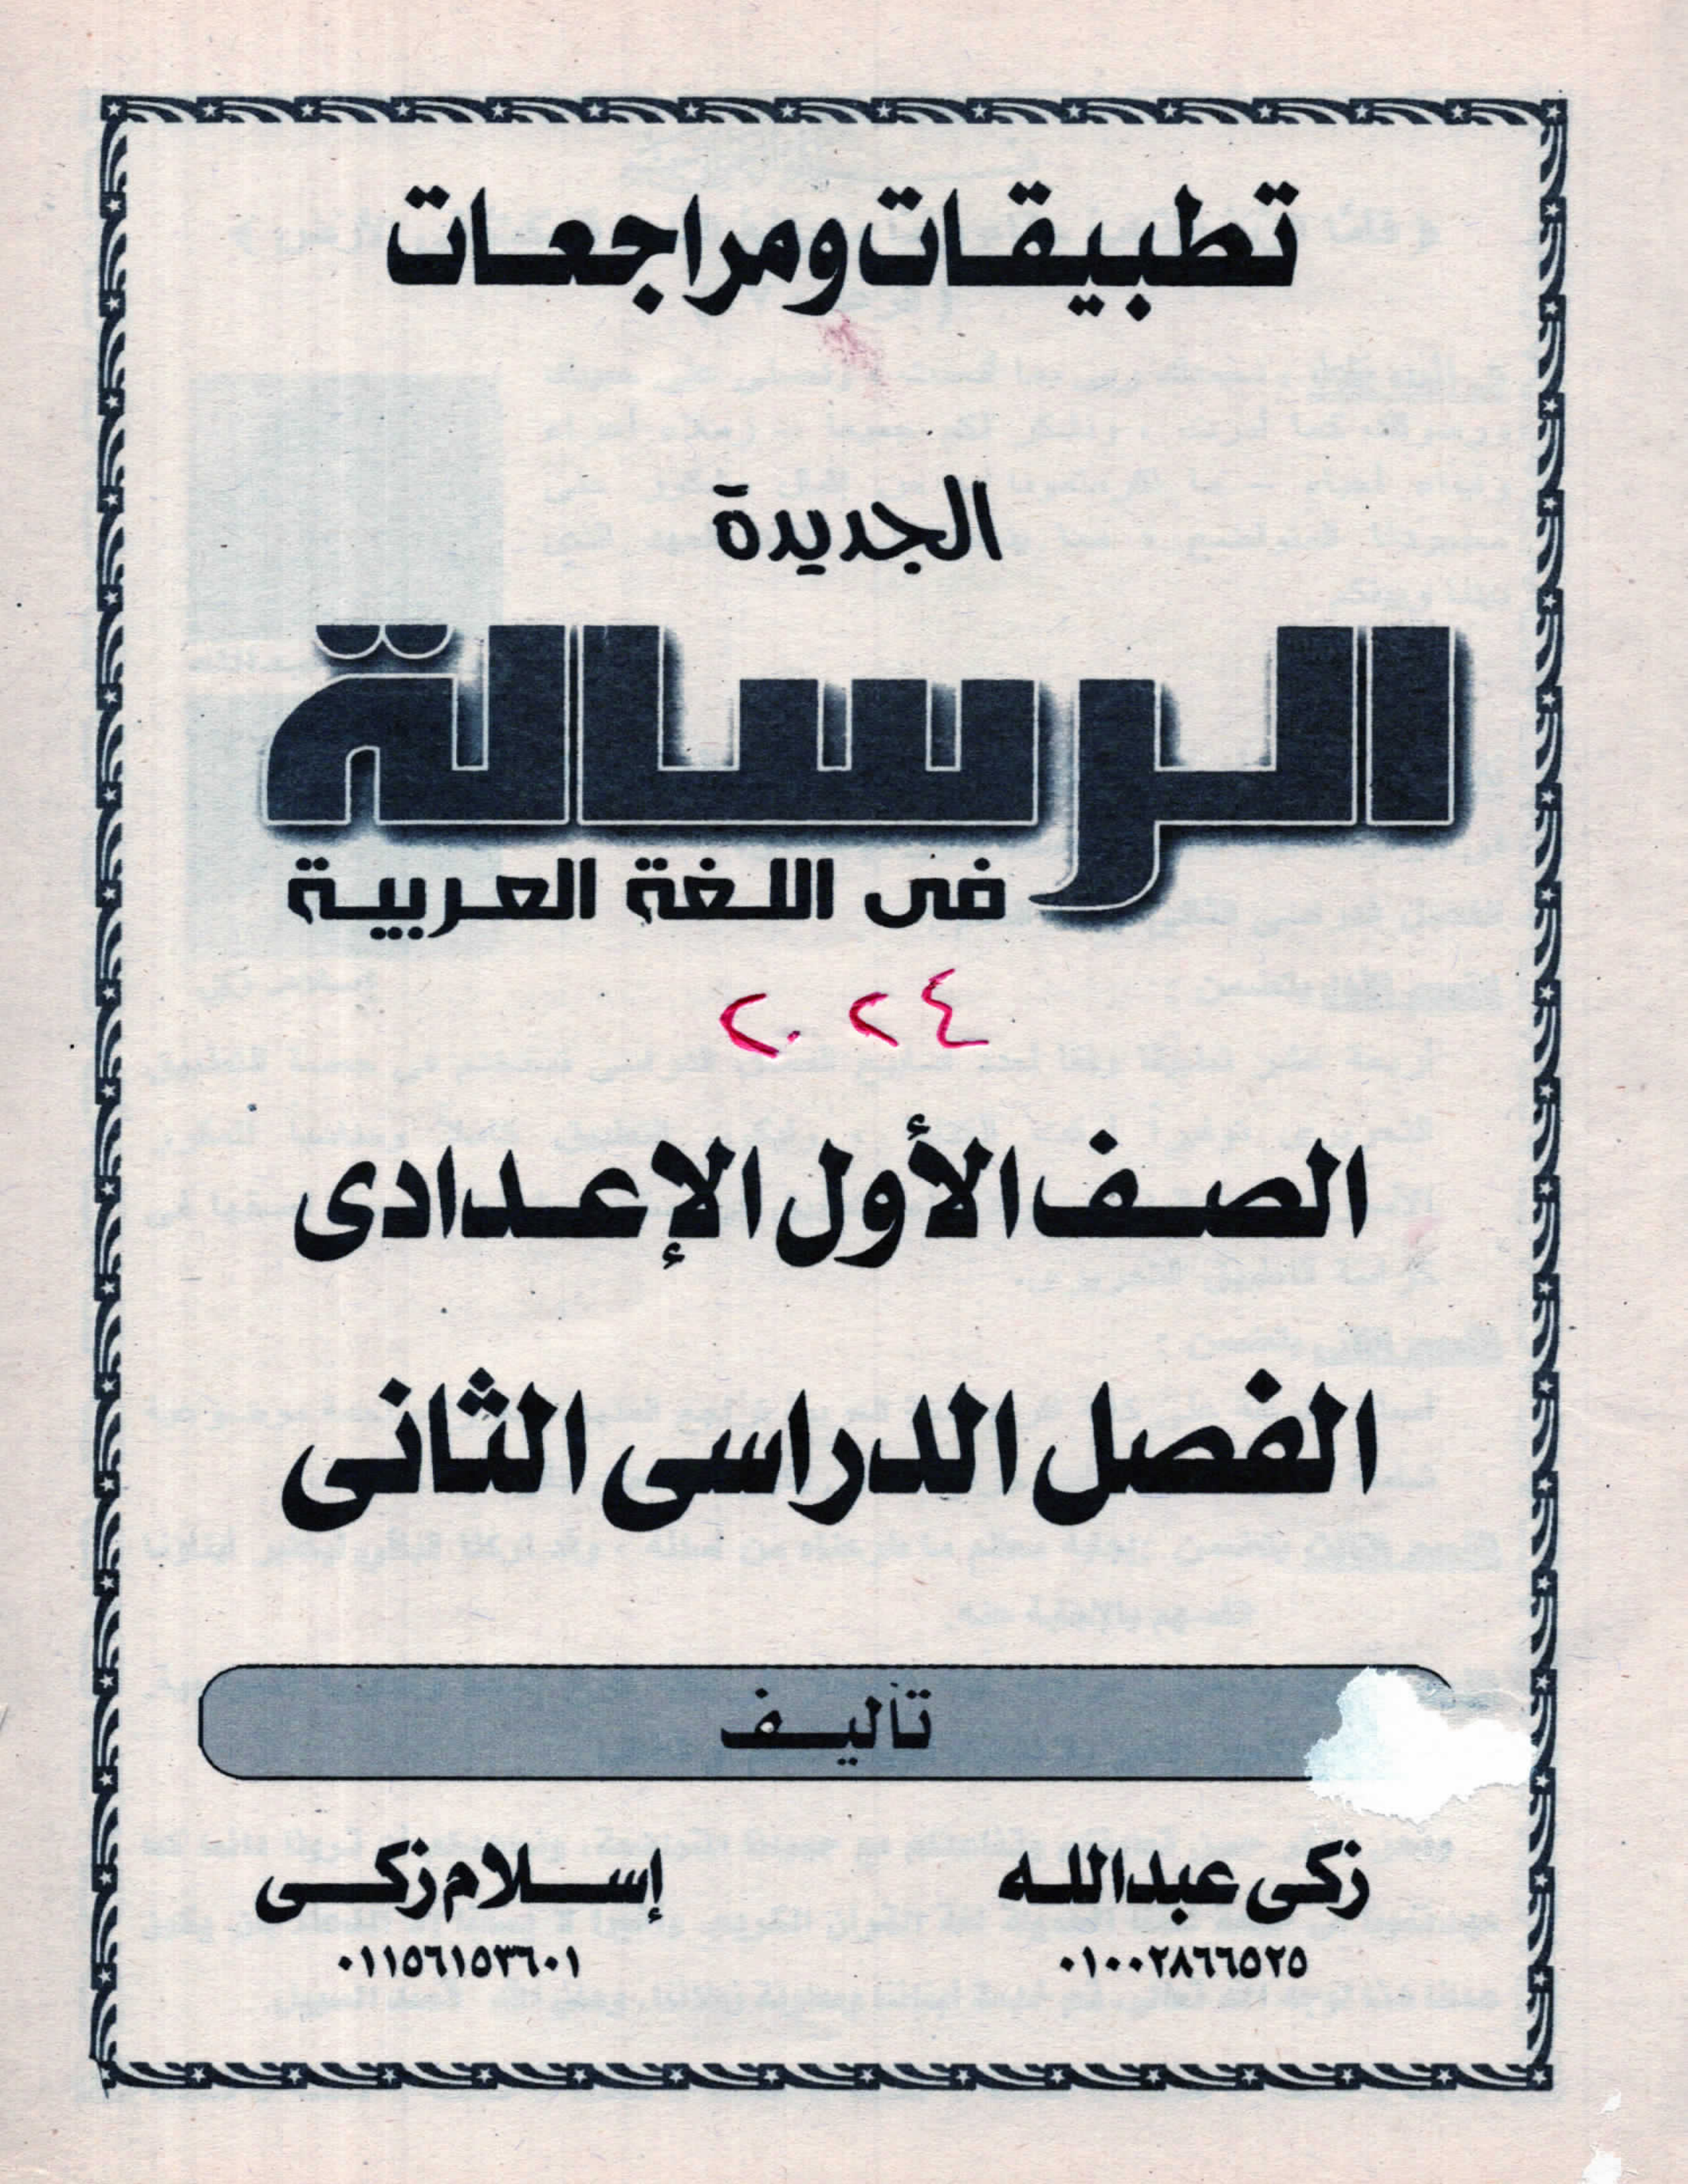 تطبيقات ومراجعات
الجديدة
الرسالة
فى اللغة العربية
٢٠٢٤
الصف الأول الإعدادى
الفصل الدراسى الثانى
تأليف
زكى عبدالله
٠١٠٠٢٨٦٦٥٢٥
إسلام زكى
٠١١٥٦١٥٣٦٠١